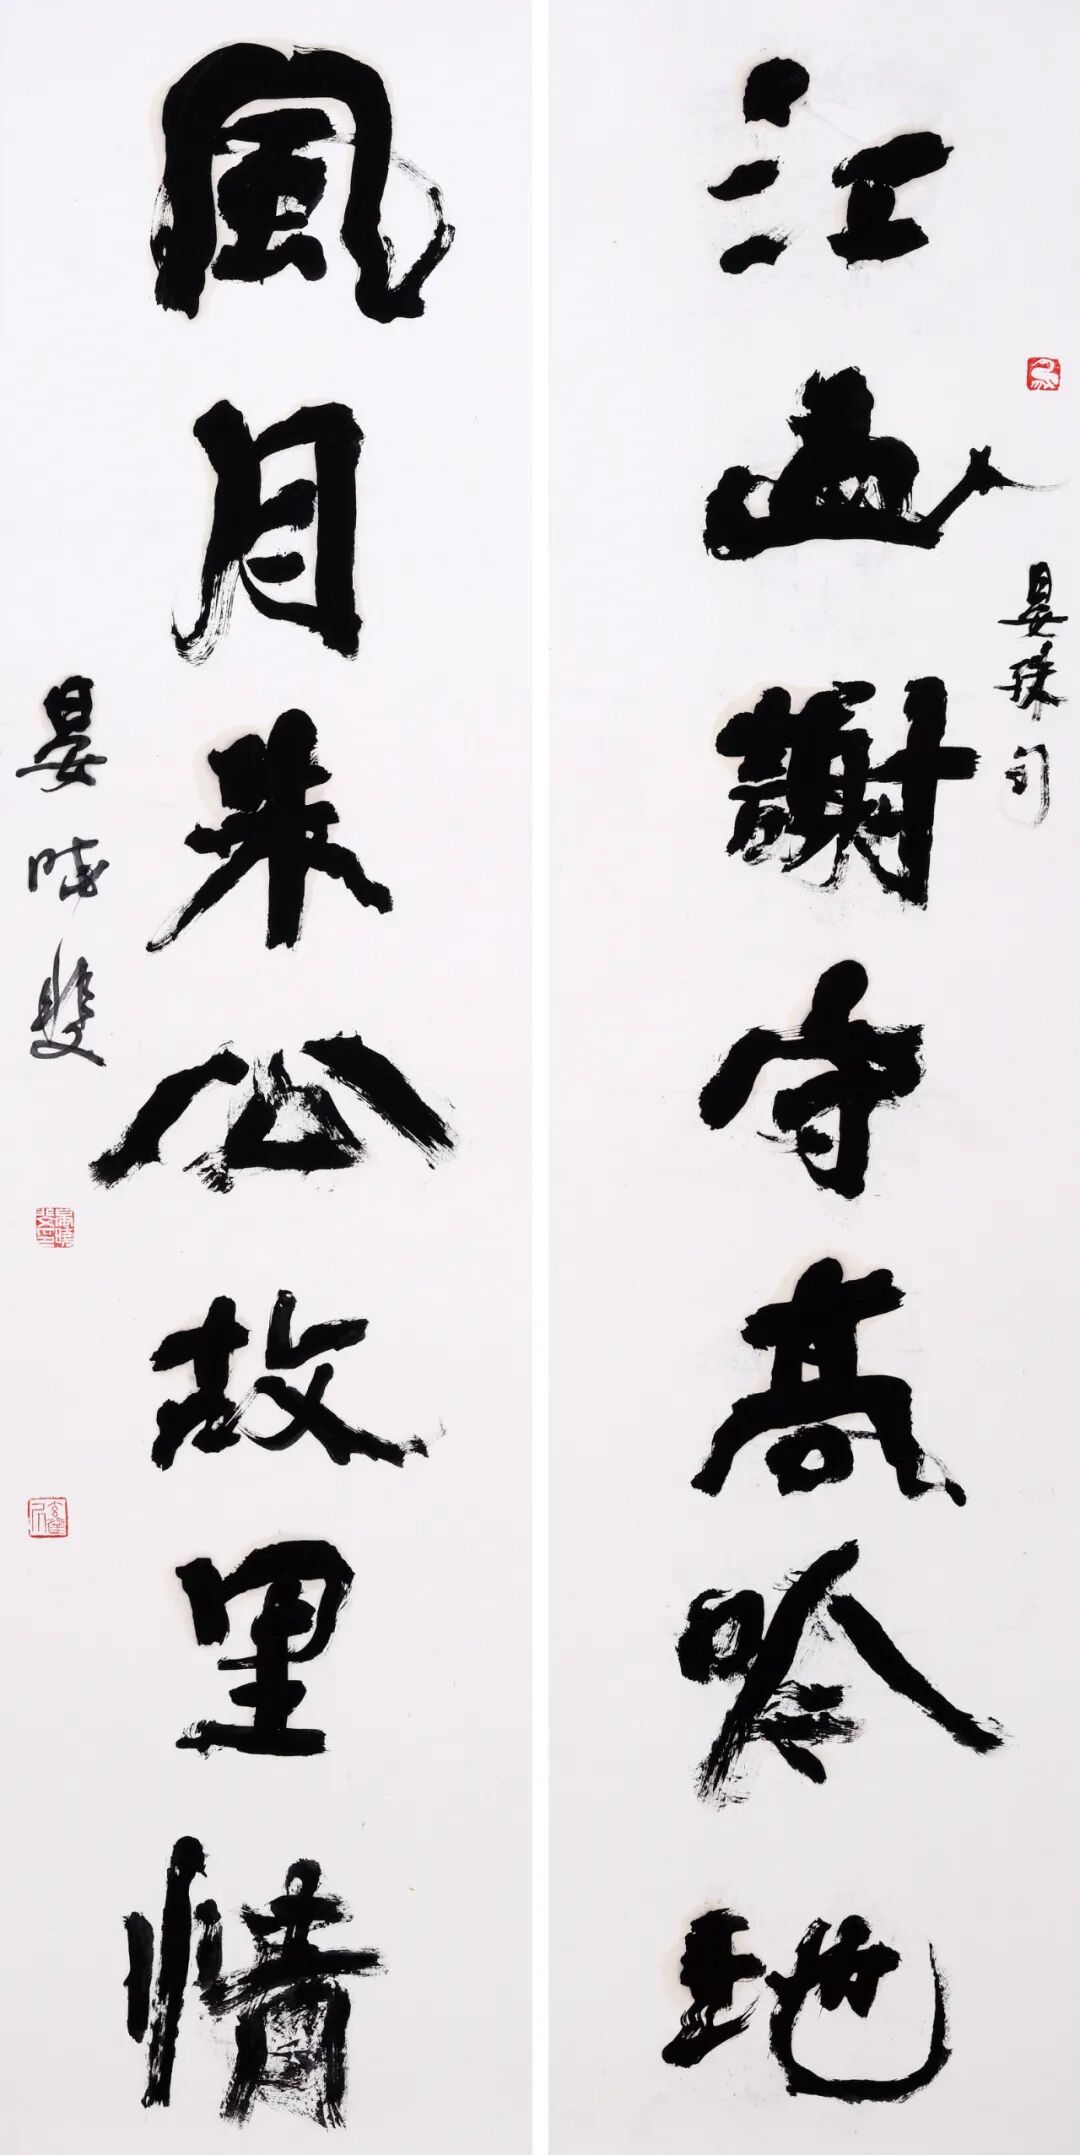 江山謝守高吟地
晏殊句
風月朱公故里情
晏曉斐